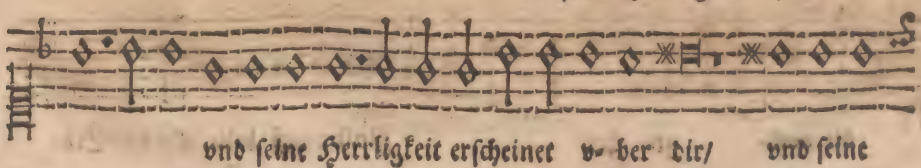 vnd ſeine Herrligkeit erſcheinet v- ber dir/ vnd ſeine